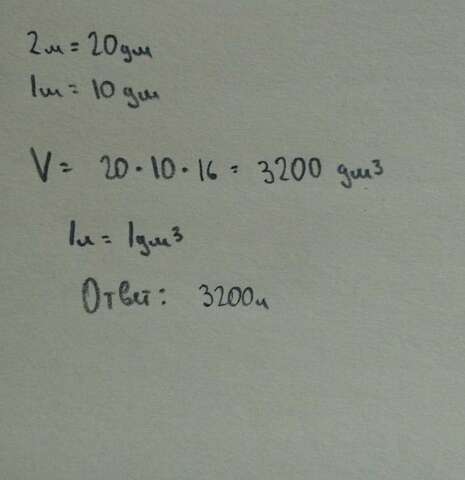 2м = 20дм
1м = 10 дм
V = 20 · 10 · 16 = 3200 дм³
1л = 1дм³
Ответ: 3200л